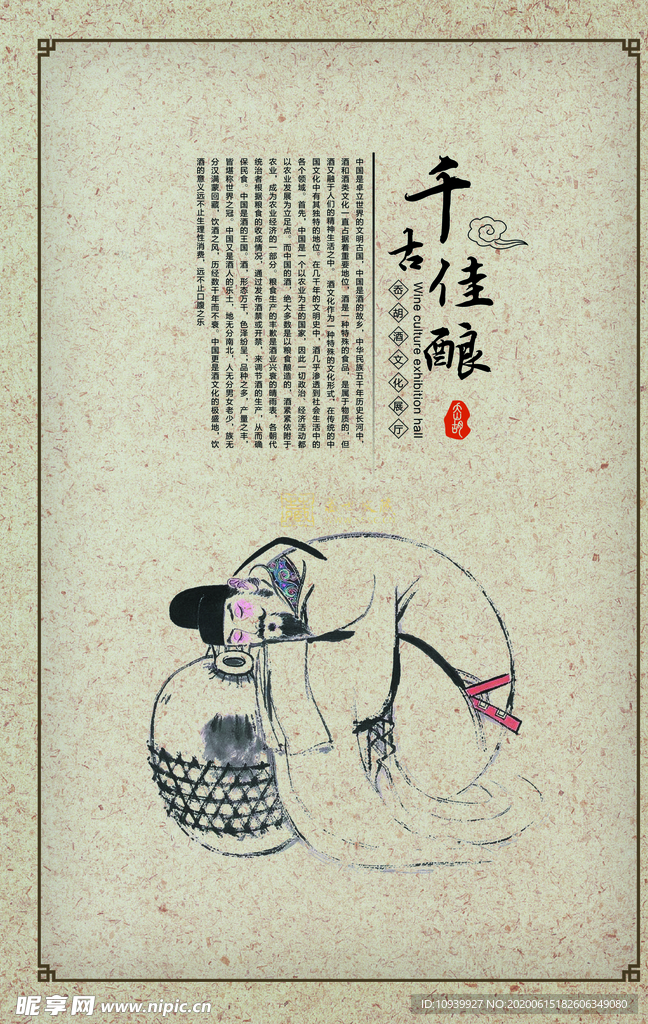 千古佳酿
Wine culture exhibition hall
岙胡酒文化展厅
岙胡
中国是卓立世界的文明古国，中国是酒的故乡，中华民族五千年历史长河中，
酒和酒类文化一直占据着重要地位，酒是一种特殊的食品，是属于物质的，但
酒又融于人们的精神生活之中。 酒文化作为一种特殊的文化形式，在传统的中
国文化中有其独特的地位。在几千年的文明史中，酒几乎渗透到社会生活中的
各个领域。首先，中国是一个以农业为主的国家，因此一切政治、经济活动都
以农业发展为立足点。而中国的酒，绝大多数是以粮食酿造的，酒紧紧依附于
农业，成为农业经济的一部分。粮食生产的丰歉是酒业兴衰的晴雨表，各朝代
统治者根据粮食的收成情况，通过发布酒禁或开禁，来调节酒的生产，从而确
保民食。中国是酒的王国。酒，形态万千，色泽纷呈，品种之多，产量之丰，
皆堪称世界之冠。中国又是酒人的乐土，地无分南北，人无分男女老少，族无
分汉满蒙回藏，饮酒之风，历经数千年而不衰。中国更是酒文化的极盛地，饮
酒的意义远不止生理性消费，远不止口腹之乐
昵享网 www.nipic.cn
ID:10939927 NO:20200615182606349080